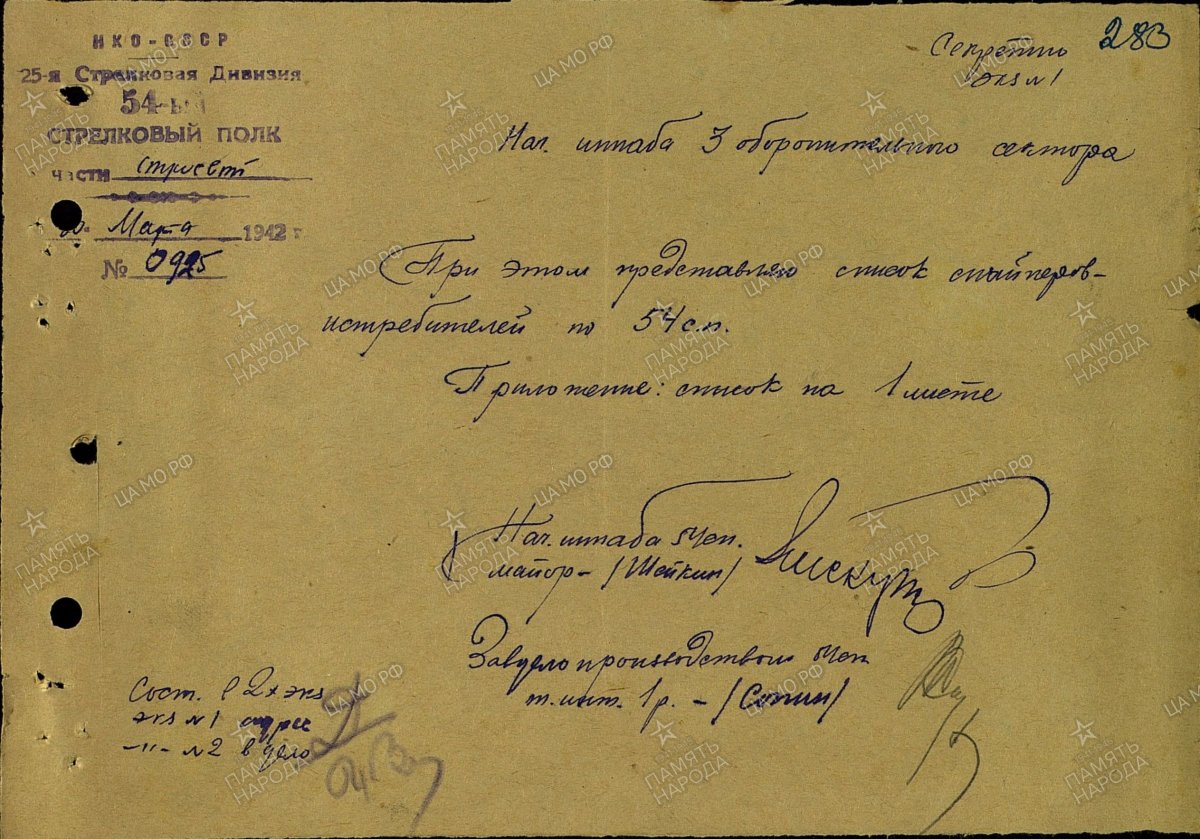 НКО-СССР
25-я Стрелковая Дивизия
54-ый
СТРЕЛКОВЫЙ ПОЛК
части
Марта 1942 г.
№ 0925
Секретно 283
экз №1
Нач. штаба 3 оборонительного сектора
При этом представляю список снайперов-
истребителей по 54 с.п.
Приложение: список на 1 листе
Нач. штаба 54 сп.
майор – /Шейкин/
Завделопроизводством 54 сп
т. инт. 1 р. – /Сопин/
Сост. в 2х экз
экз №1 адрес
–"– №2 в дело
ЦА МО РФ
ПАМЯТЬ
НАРОДА